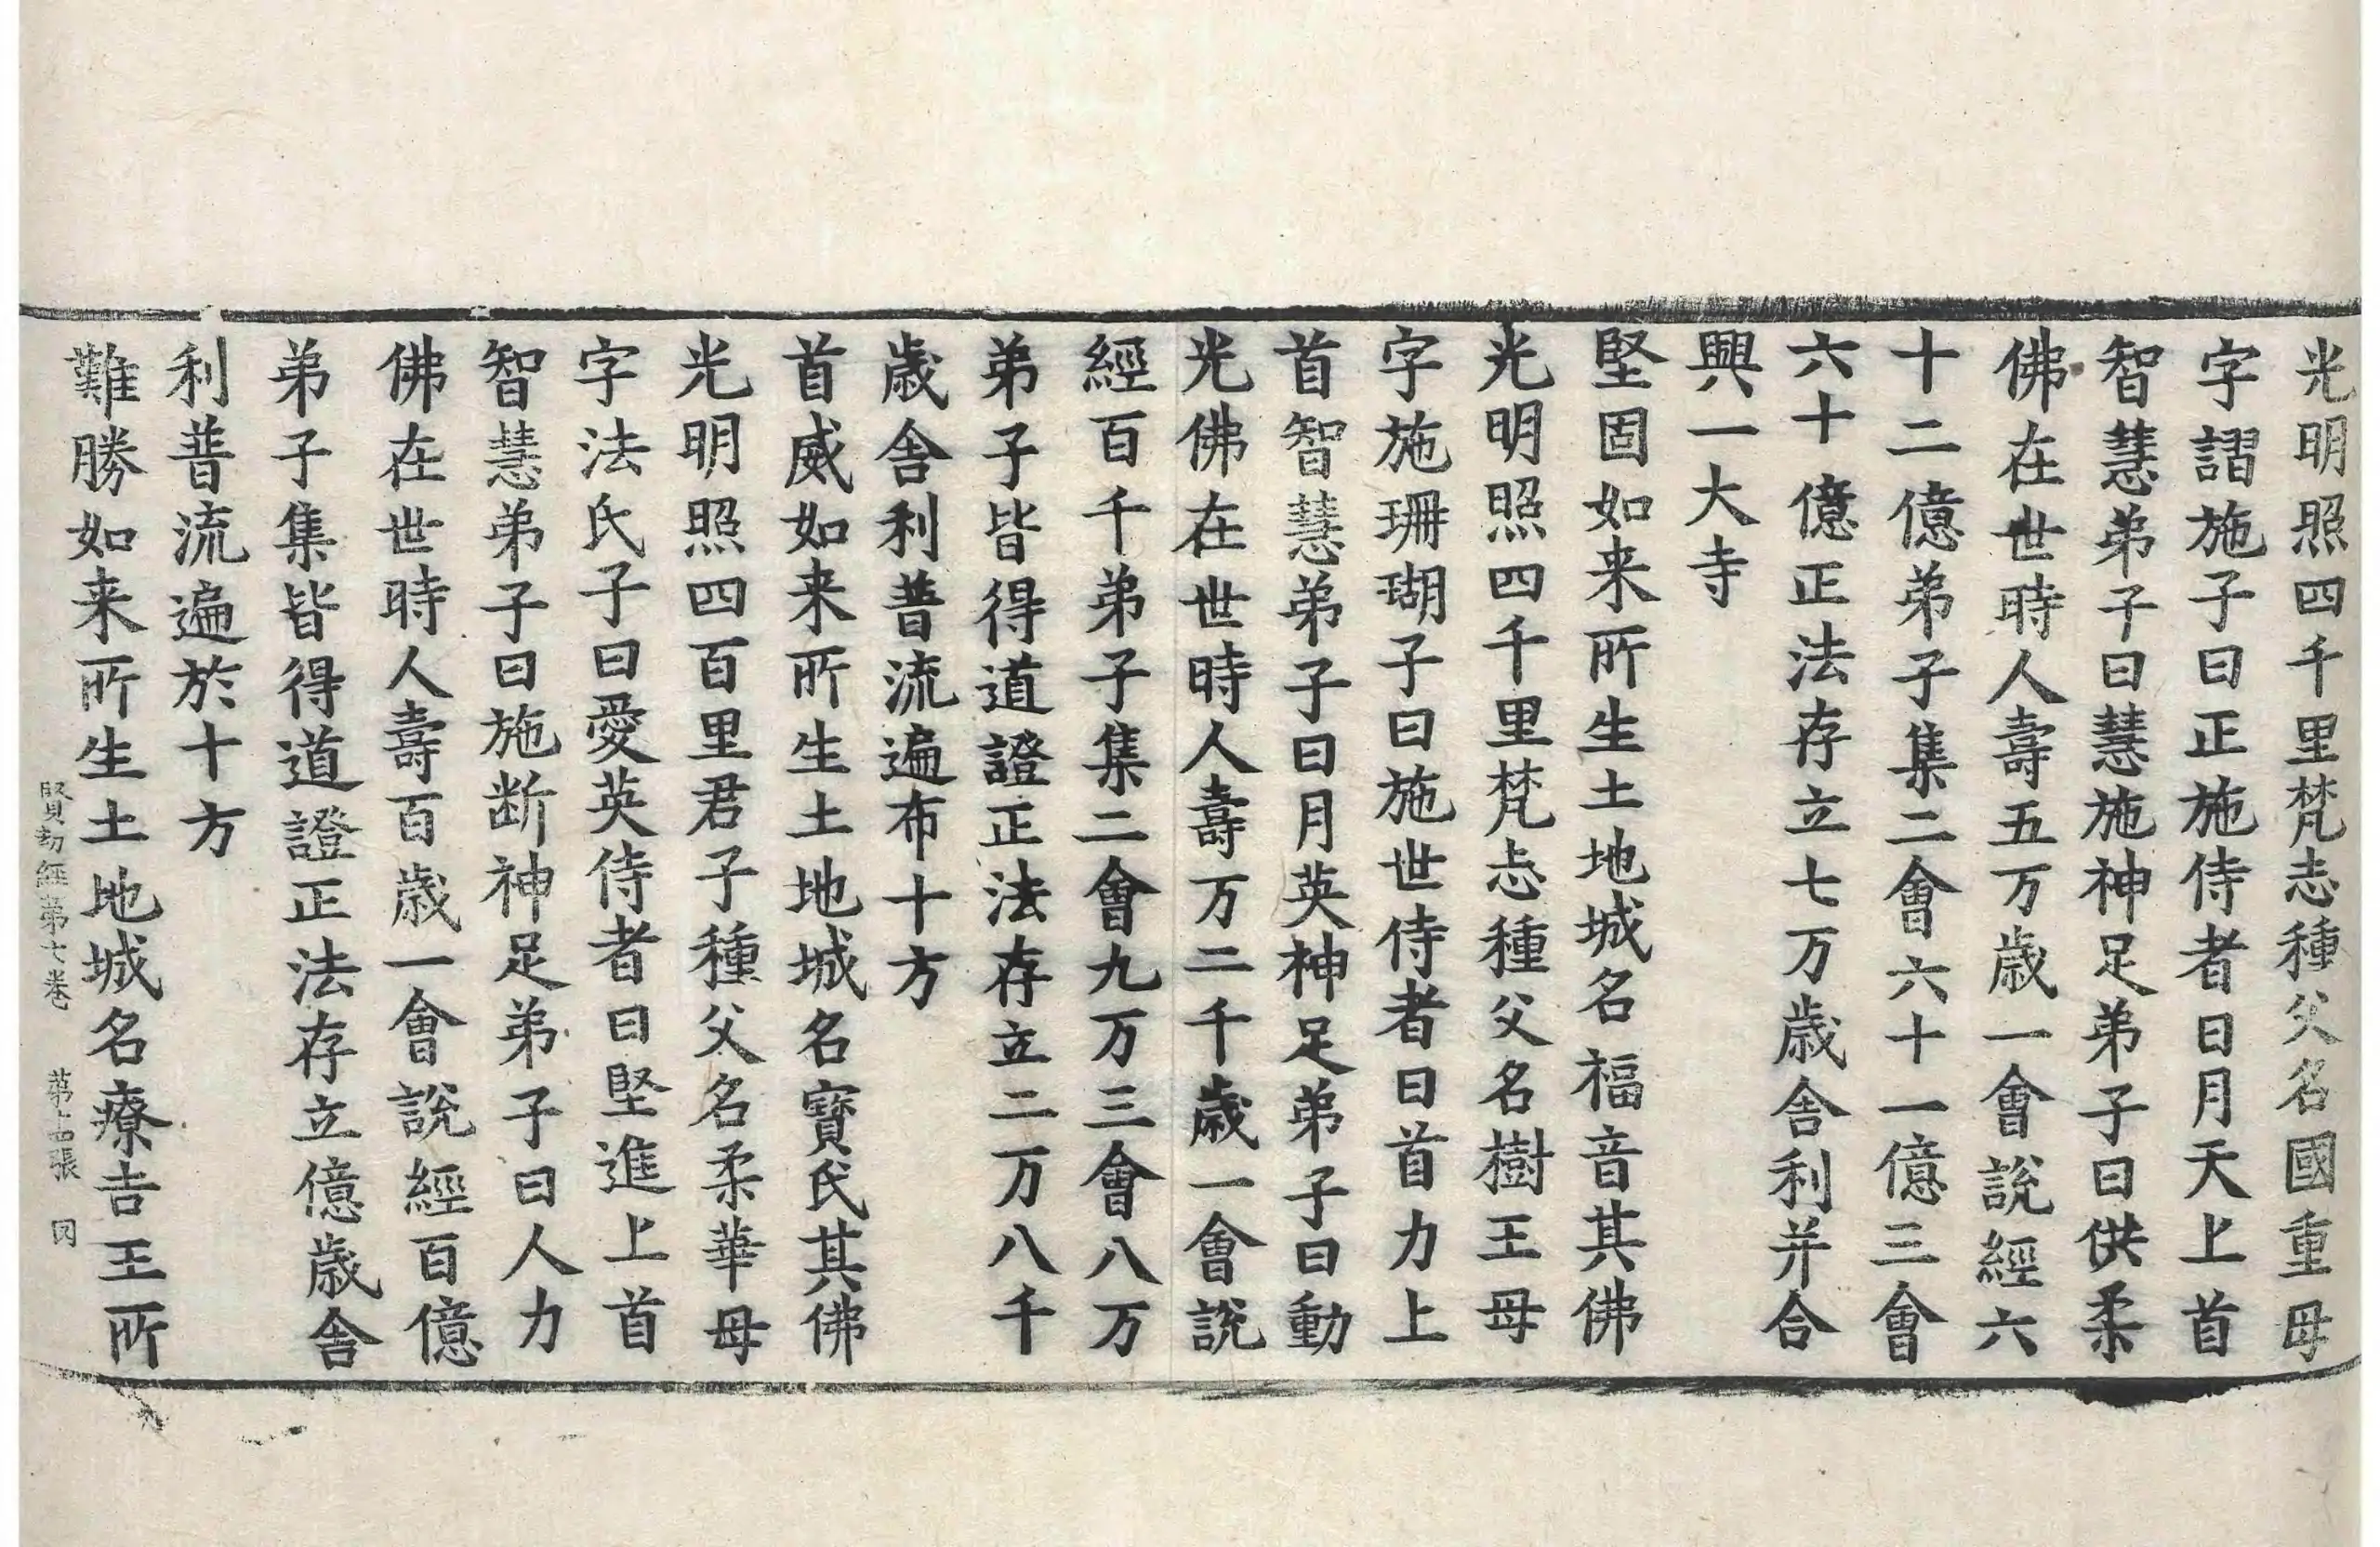 光明照四千里梵志種父名國重母
字謵施子曰正施侍者曰月天上首
智慧弟子曰慧施神足弟子曰供柔
佛在世時人壽五万歳一會說經六
十二億弟子集二會六十一億三會
六十億正法存立七万歳舍利并合
興一大寺
堅固如来所生土地城名福音其佛
光明照四千里梵志種父名樹王母
字施珊瑚子曰施世侍者曰首力上
首智慧弟子曰月英神足弟子曰動
光佛在世時人壽万二千歳一會說
經百千弟子集二會九万三會八万
弟子皆得道證正法存立二万八千
歳舍利普流遍布十方
首威如来所生土地城名寶氏其佛
光明照四百里君子種父名柔華母
字法氏子曰愛英侍者曰堅進上首
智慧弟子曰施断神足弟子曰人力
佛在世時人壽百歳一會說經百億
弟子集皆得道證正法存立億歳舍
利普流遍於十方
難勝如来所生土地城名療吉王所
賢劫經第七卷 第十四張 同